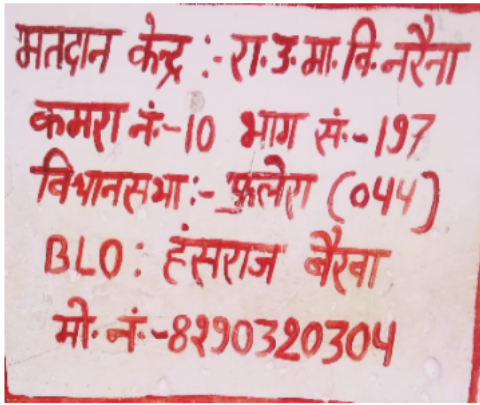 मतदान केन्द्र :- रा.उ.मा.वि.नरैना
कमरा नं.-10 भाग सं.-197
विधानसभा :- फुलेरा (044)
BLO : हंसराज बैरवा
मो. नं.-8290320304